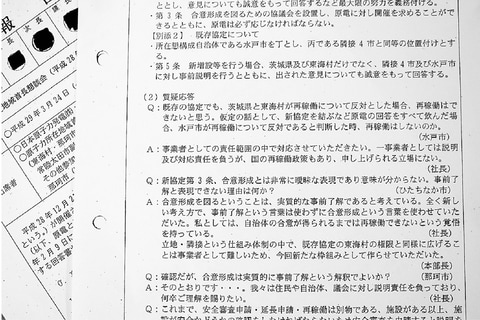 とし、意見についても誠意をもって回答するなど最大限の努力を義務付ける。
・第3条 合意形成を図るための協議会を設置し、原電に対し開催を求めることができるとともに、原電は必ず応じなければならない。
【別添2】 既存協定について
・所在懇構成自治体である水戸市を丁とし、丙である隣接4市と同等の位置付けとする。
・第5条 新増設等を行う場合、茨城県及び東海村だけでなく、隣接4市及び水戸市に対し事前説明を行うとともに、出された意見についても誠意をもって回答する。
(2) 質疑応答
Q:既存の協定でも、茨城県と東海村が再稼働について反対とした場合、再稼働はできないと思う。仮定の話として、新協定を結ぶなど原電の回答をすべて飲んだ場合、水戸市が再稼働について反対であると判断した時、再稼働はしないのか。
(水戸市)
A:事業者としての責任範囲の中で対応させていただきたい。一事業者としては説明及び対応責任を負うが、国の再稼働政策もあり、申し上げられる立場にない。
(社長)
Q:新協定第3条、合意形成とは非常に曖昧な表現であり意味が分からない。事前了解と表現できない理由は何か?
(ひたちなか市)
A:合意形成を図るということは、実質的な事前了解であると考えている。全く新しい考え方で、事前了解という言葉は使わずに合意形成という言葉を使わせていただいた。私としては、自治体の合意が得られるまでは再稼働できないという覚悟を持っている。
(社長)
立地・隣接という仕組み体制の中で、既存協定の東海村の権限と同様に広げることは事業者として難しいため、今回新たな枠組みとして作らせていただいた。
(本部長)
Q:確認だが、合意形成は実質的に事前了解という解釈でよいか?
(那珂市)
A:そのとおりです・・・。我々は住民や自治体、議会に対し説明責任を負っており、何卒ご理解を賜りたい。
(社長)
Q:これまで、安全審査申請・延長申請・再稼働は別物である、施設がある以上、施
報
長
次長
地域首長懇談会(平成28
○平成29年3月24日(
○日本原子力発電(
○原子力所在地域首
(東海村、那珂市
常陸太田市
その他参加
那珂市
平成28年12月2
という。)が開催さ
(以下、原電と
2月9日に
する回答書